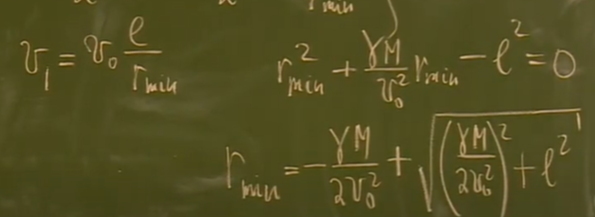 r_min
v_1 = v_0 ℓ/r_min
r_min^2 + γM/v_0^2 r_min - ℓ^2 = 0
r_min = -γM/2v_0^2 + √((γM/2v_0^2)^2 + ℓ^2)